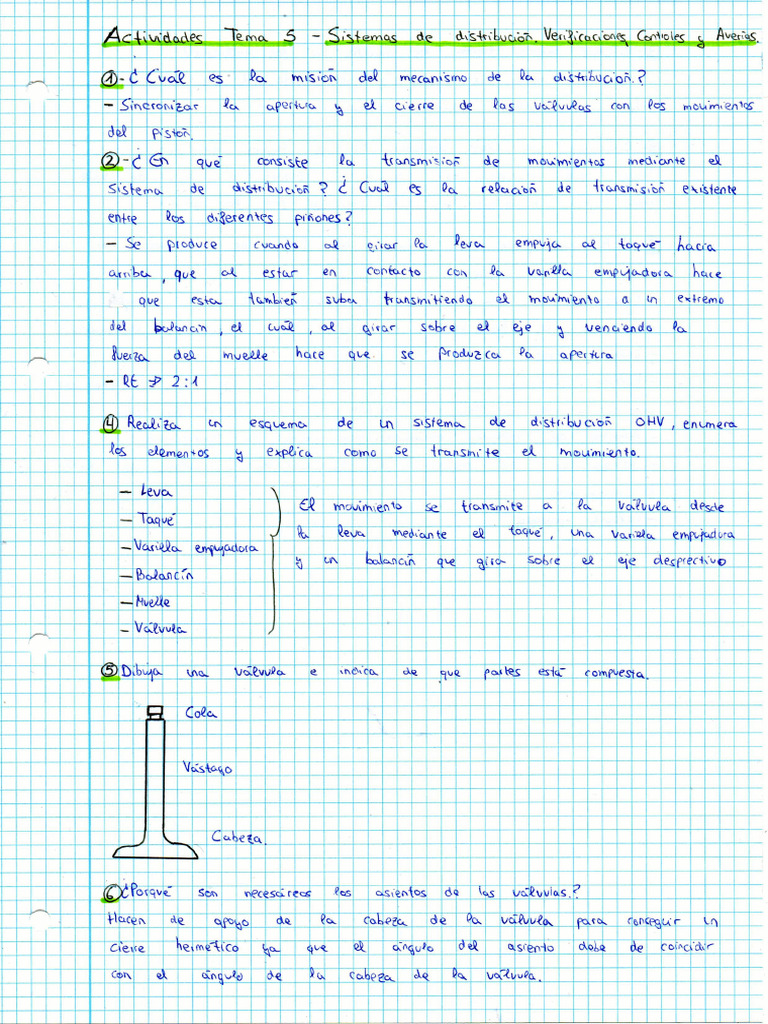 Actividades Tema 5 - Sistemas de distribución. Verificaciones Controles y Averias.
①-¿Cuál es la misión del mecanismo de la distribución.?
- Sincronizar la apertura y el cierre de las válvulas con los movimientos
del pistón.
②-¿En qué consiste la transmisión de movimientos mediante el
sistema de distribución? ¿Cuál es la relación de transmisión existente
entre los diferentes piñones?
- Se produce cuando al girar la leva empuja al taqué hacia
arriba, que al estar en contacto con la varilla empujadora hace
que esta también suba transmitiendo el movimiento a un extremo
del balancín, el cuál, al girar sobre el eje y venciendo la
fuerza del muelle hace que se produzca la apertura
- Rt → 2:1
④ Realiza un esquema de un sistema de distribución OHV, enumera
los elementos y explica como se transmite el movimiento.
- Leva
- Taqué
- Varilla empujadora
- Balancín
- Muelle
- Válvula
El movimiento se transmite a la válvula desde
la leva mediante el taqué, una varilla empujadora
y un balancín que gira sobre el eje desprectivo
⑤ Dibuja una válvula e indica de que partes está compuesta.
Cola
Vástago
Cabeza.
⑥ ¿Porqué son necesáreos los asientos de las válvulas.?
Hacen de apoyo de la cabeza de la válvula para conseguir un
cierre hermético ya que el ángulo del asiento debe de coincidir
con el ángulo de la cabeza de la válvula.